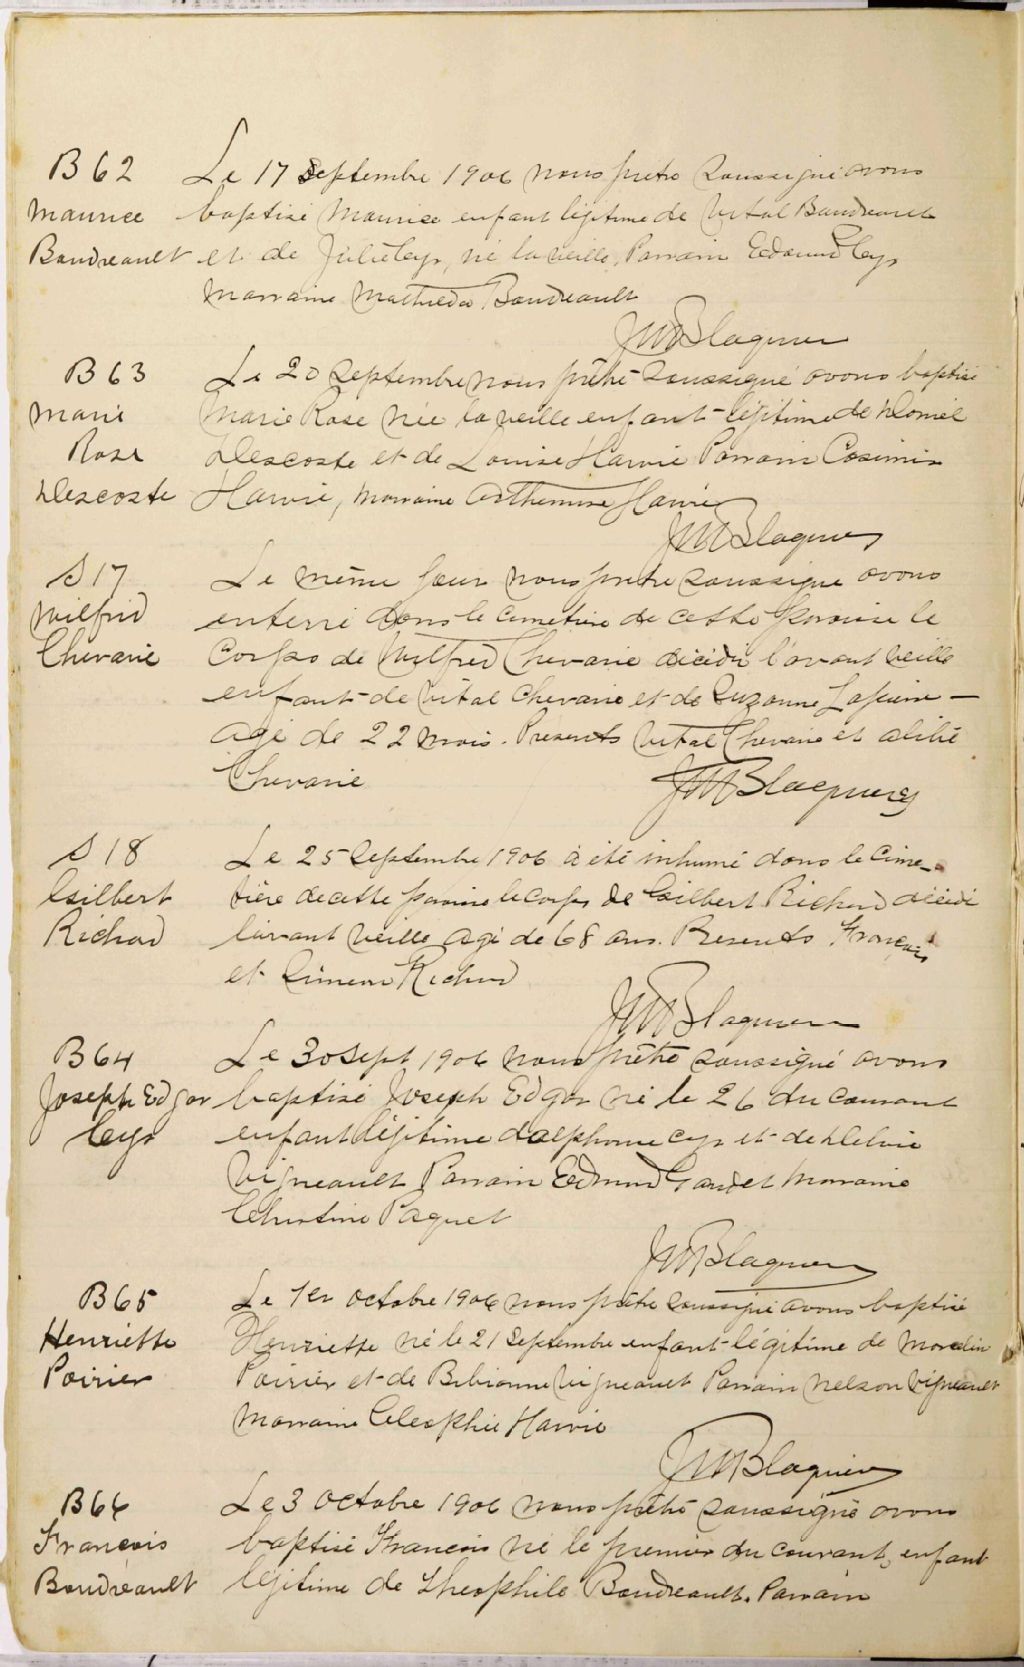 B 62
Maurice
Boudreault
Le 17 Septembre 1906 nous prêtre soussigné avons
baptisé Maurice enfant légitime de Vital Boudreault
et de Julie Cyr, né la veille, Parrain Edouard Cyr
Marraine Mathilda Boudreault
JMBlaquiere
B 63
Marie
Rose
Descoste
Le 20 Septembre nous prêtre soussigné avons baptisé
Marie Rose née la veille enfant légitime de
Descoste et de Louise Harvie Parrain Casimir
Harvie, marraine Arthemise Harvie
JMBlaquiere
S 17
Wilfrid
Chevarie
Le même jour nous prêtre soussigné avons
enterré dans le cimetière de cette paroisse le
Corps de Wilfred Chevarie décédé l'avant veille
enfant de Vital Chevarie et de Suzanne Lapierre —
agé de 22 mois. Présents Vital Chevarie et
Chevarie
JMBlaquiere
S 18
Gilbert
Richard
Le 25 Septembre 1906 a été inhumé dans le cime-
tière de cette paroisse le corps de Gilbert Richard décédé
l'avant veille agé de 68 ans. Presents François
et Simeon Richard
JMBlaquiere
B 64
Joseph Edgar
Cyr
Le 30 Sept 1906 nous prêtre soussigné avons
baptisé Joseph Edgar né le 26 du courant
enfant légitime d'Alphonse Cyr et de Delvie
Vigneault Parrain Edmund Gaudet Marraine
Celestine Paquet
JMBlaquiere
B 65
Henriette
Poirier
Le 1er Octobre 1906 nous prêtre soussigné avons baptisé
Henriette né le 21 Septembre enfant légitime de
Poirier et de Bibianne Vigneault Parrain Nelson Vigneault
Marraine Cleophie Harvie
JMBlaquiere
B 66
François
Boudreault
Le 3 Octobre 1906 nous prêtre soussigné avons
baptisé François né le premier du courant, enfant
légitime de Theophile Boudreault. Parrain